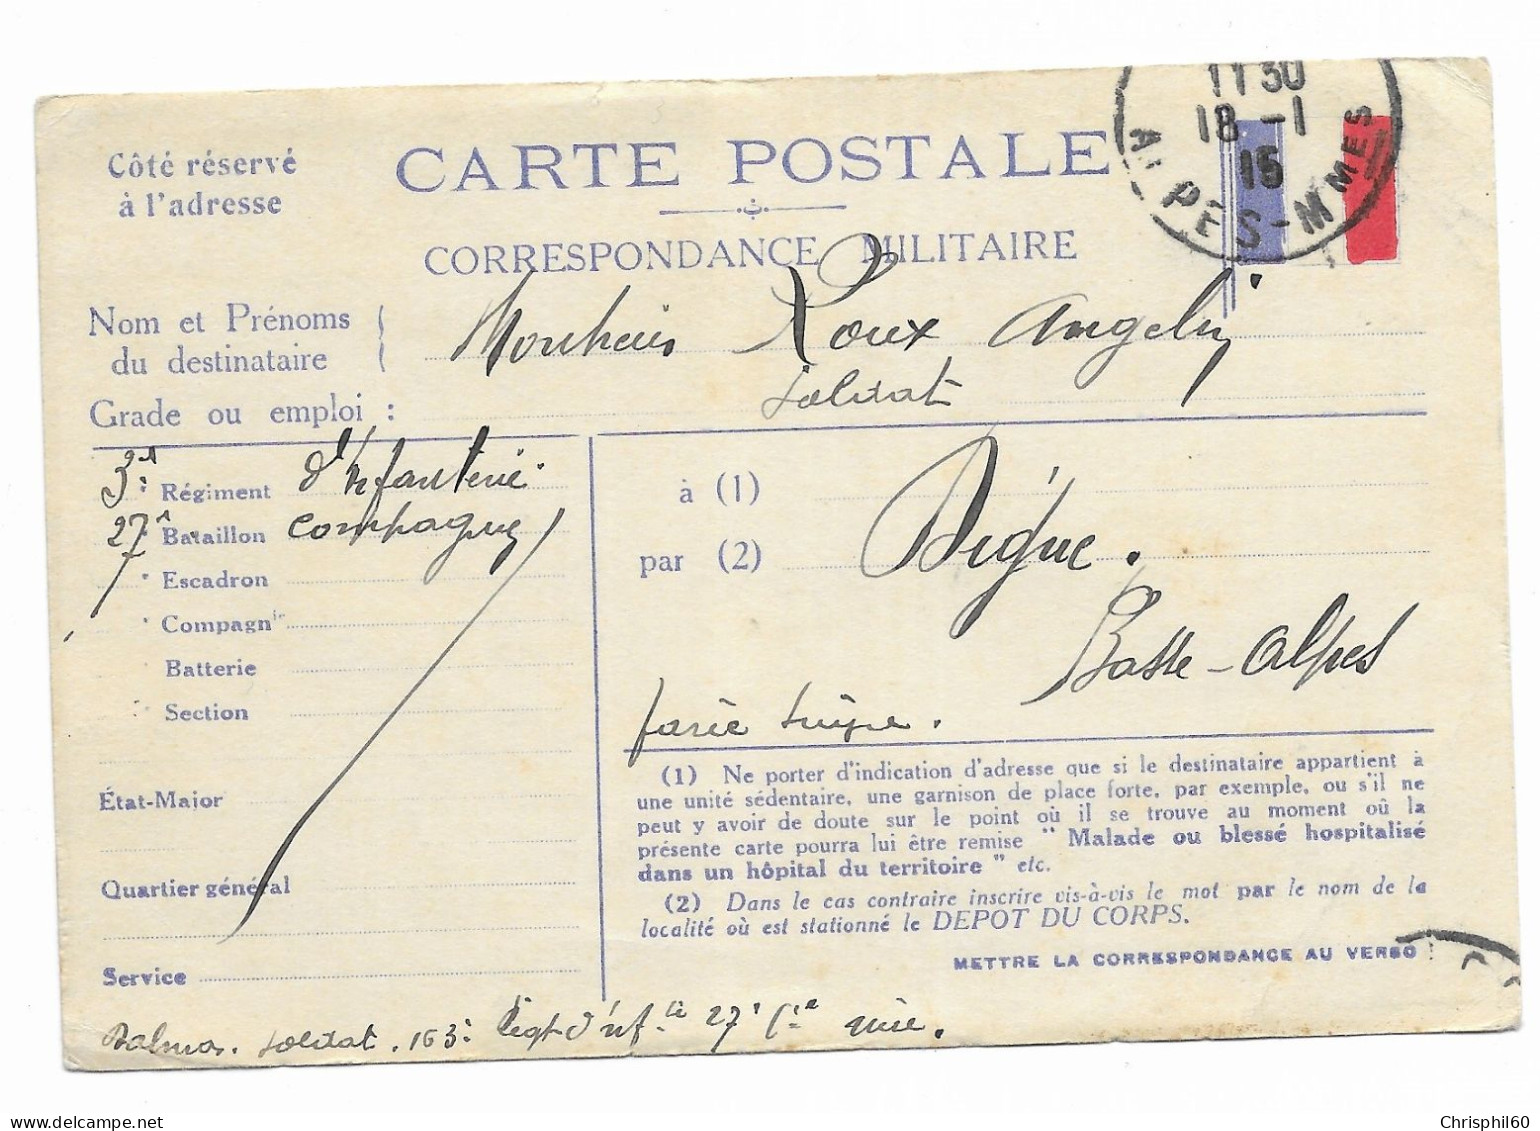 11 30
18 -1
15
PES-MMES
Côté réservé
à l'adresse
CARTE POSTALE
CORRESPONDANCE MILITAIRE
Nom et Prénoms
du destinataire
Roux Angelin
Grade ou emploi :
soldat
3e Régiment d'Infanterie.
27e Bataillon Compagnie
Escadron
Compagnie
Batterie
Section
État-Major
Quartier général
Service
à (1)
par (2)
Digne.
Basse-Alpes
(1) Ne porter d'indication d'adresse que si le destinataire appartient à
une unité sédentaire, une garnison de place forte, par exemple, ou s'il ne
peut y avoir de doute sur le point où il se trouve au moment où la
présente carte pourra lui être remise " Malade ou blessé hospitalisé
dans un hôpital du territoire " etc.
(2) Dans le cas contraire inscrire vis-à-vis le mot par le nom de la
localité où est stationné le DEPOT DU CORPS.
METTRE LA CORRESPONDANCE AU VERSO
Balmas. soldat. 163e Regt d'infie 27e Cie
Chrisphil60